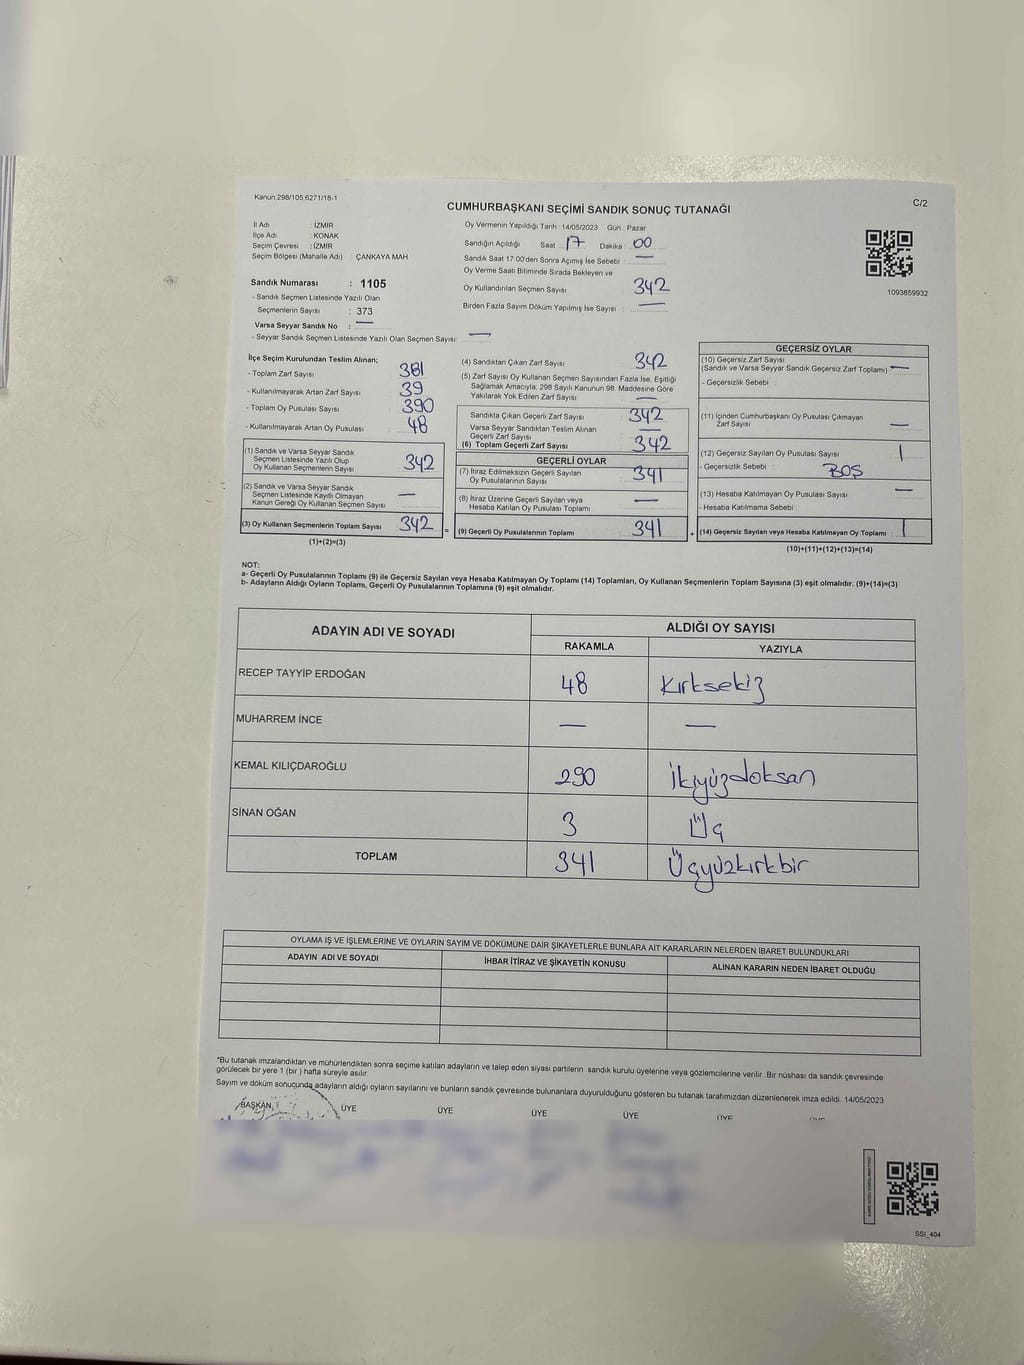 Kanun:298/105,6271/18-1
C/2
CUMHURBAŞKANI SEÇİMİ SANDIK SONUÇ TUTANAĞI
İl Adı : İZMİR
İlçe Adı : KONAK
Seçim Çevresi : İZMİR
Seçim Bölgesi (Mahalle Adı) ÇANKAYA MAH
Sandık Numarası : 1105
- Sandık Seçmen Listesinde Yazılı Olan
Seçmenlerin Sayısı : 373
Varsa Seyyar Sandık No : —
- Seyyar Sandık Seçmen Listesinde Yazılı Olan Seçmen Sayısı: —
Oy Vermenin Yapıldığı Tarih : 14/05/2023 Gün : Pazar
Sandığın Açıldığı Saat 17 Dakika : 00
Sandık Saat 17:00'den Sonra Açımış İse Sebebi : —
Oy Verme Saati Bitiminde Sırada Bekleyen ve
Oy Kullandırılan Seçmen Sayısı 342
Birden Fazla Sayım Döküm Yapılmış İse Sayısı : —
1093859932
İlçe Seçim Kurulundan Teslim Alınan;
- Toplam Zarf Sayısı 381
- Kullanılmayarak Artan Zarf Sayısı 39
- Toplam Oy Pusulası Sayısı 390
- Kullanılmayarak Artan Oy Pusulası 48
(1) Sandık ve Varsa Seyyar Sandık
Seçmen Listesinde Yazılı Olup
Oy Kullanan Seçmenlerin Sayısı 342
(2) Sandık ve Varsa Seyyar Sandık
Seçmen Listesinde Kaydı Olmayan
Kanun Gereği Oy Kullanan Seçmen Sayısı —
(3) Oy Kullanan Seçmenlerin Toplam Sayısı 342
(1)+(2)=(3)
(4) Sandıktan Çıkan Zarf Sayısı 342
(5) Zarf Sayısı Oy Kullanan Seçmen Sayısından Fazla İse, Eşitliği
Sağlamak Amacıyla, 298 Sayılı Kanunun 98. Maddesine Göre
Yakılarak Yok Edilen Zarf Sayısı —
Sandıkta Çıkan Geçerli Zarf Sayısı 342
Varsa Seyyar Sandıktan Teslim Alınan
Geçerli Zarf Sayısı —
(6) Toplam Geçerli Zarf Sayısı 342
GEÇERLİ OYLAR
(7) İtiraz Edilmeksizin Geçerli Sayılan
Oy Pusulalarının Sayısı 341
(8) İtiraz Üzerine Geçerli Sayılan veya
Hesaba Katılan Oy Pusulası Toplamı —
= (9) Geçerli Oy Pusulalarının Toplamı 341
GEÇERSİZ OYLAR
(10) Geçersiz Zarf Sayısı
(Sandık ve Varsa Seyyar Sandık Geçersiz Zarf Toplamı) —
- Geçersizlik Sebebi
(11) İçinden Cumhurbaşkanı Oy Pusulası Çıkmayan
Zarf Sayısı —
(12) Geçersiz Sayılan Oy Pusulası Sayısı 1
- Geçersizlik Sebebi : BOŞ
(13) Hesaba Katılmayan Oy Pusulası Sayısı —
- Hesaba Katılmama Sebebi
+ (14) Geçersiz Sayılan veya Hesaba Katılmayan Oy Toplamı 1
(10)+(11)+(12)+(13)=(14)
NOT:
a- Geçerli Oy Pusulalarının Toplamı (9) ile Geçersiz Sayılan veya Hesaba Katılmayan Oy Toplamı (14) Toplamları, Oy Kullanan Seçmenlerin Toplam Sayısına (3) eşit olmalıdır. (9)+(14)=(3)
b- Adayların Aldığı Oyların Toplamı, Geçerli Oy Pusulalarının Toplamına (9) eşit olmalıdır.
ADAYIN ADI VE SOYADI ALDIĞI OY SAYISI
RAKAMLA YAZIYLA
RECEP TAYYİP ERDOĞAN 48 Kırksekiz
MUHARREM İNCE — —
KEMAL KILIÇDAROĞLU 290 İkiyüzdoksan
SİNAN OĞAN 3 Üç
TOPLAM 341 Üçyüzkırkbir
OYLAMA İŞ VE İŞLEMLERİNE VE OYLARIN SAYIM VE DÖKÜMÜNE DAİR ŞİKAYETLERLE BUNLARA AİT KARARLARIN NELERDEN İBARET BULUNDUKLARI
ADAYIN ADI VE SOYADI İHBAR İTİRAZ VE ŞİKAYETİN KONUSU ALINAN KARARIN NEDEN İBARET OLDUĞU
*Bu tutanak imzalandıktan ve mühürlendikten sonra seçime katılan adayların ve talep eden siyasi partilerin sandık kurulu üyelerine veya gözlemcilerine verilir. Bir nüshası da sandık çevresinde
görülecek bir yere 1 (bir ) hafta süreyle asılır.
Sayım ve döküm sonucunda adayların aldığı oyların sayılarını ve bunların sandık çevresinde bulunanlara duyurulduğunu gösteren bu tutanak tarafımızdan düzenlenerek imza edildi. 14/05/2023
BAŞKAN ÜYE ÜYE ÜYE ÜYE ÜYE
SSI_404